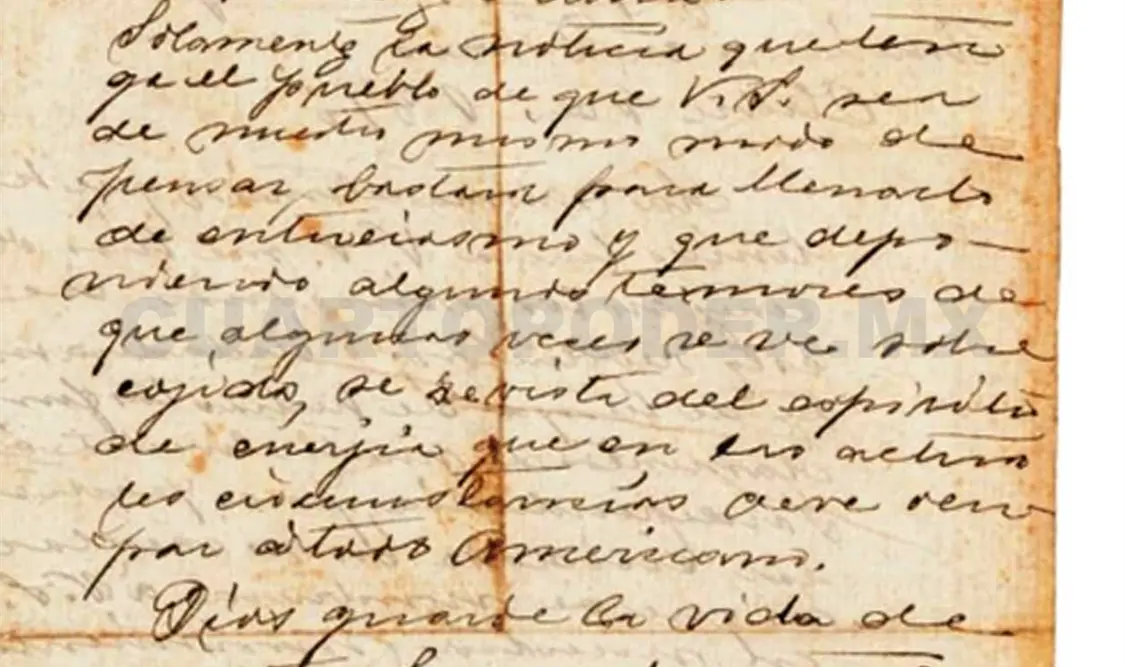 Solamente la noticia que ten
ga el pueblo de que V.S. sea
de nuestro mismo modo de
pensar, bastará para llenarlo
de entuciasmo y que depo-
niendo algunos temores de
que algunas veces se ve sobre
cojido, se revista del espiritu
de enerjia que en las actua
les circunstansias deve ocu
par á todo Americano.
Dios guarde la vida de
CUARTOPODER.MX